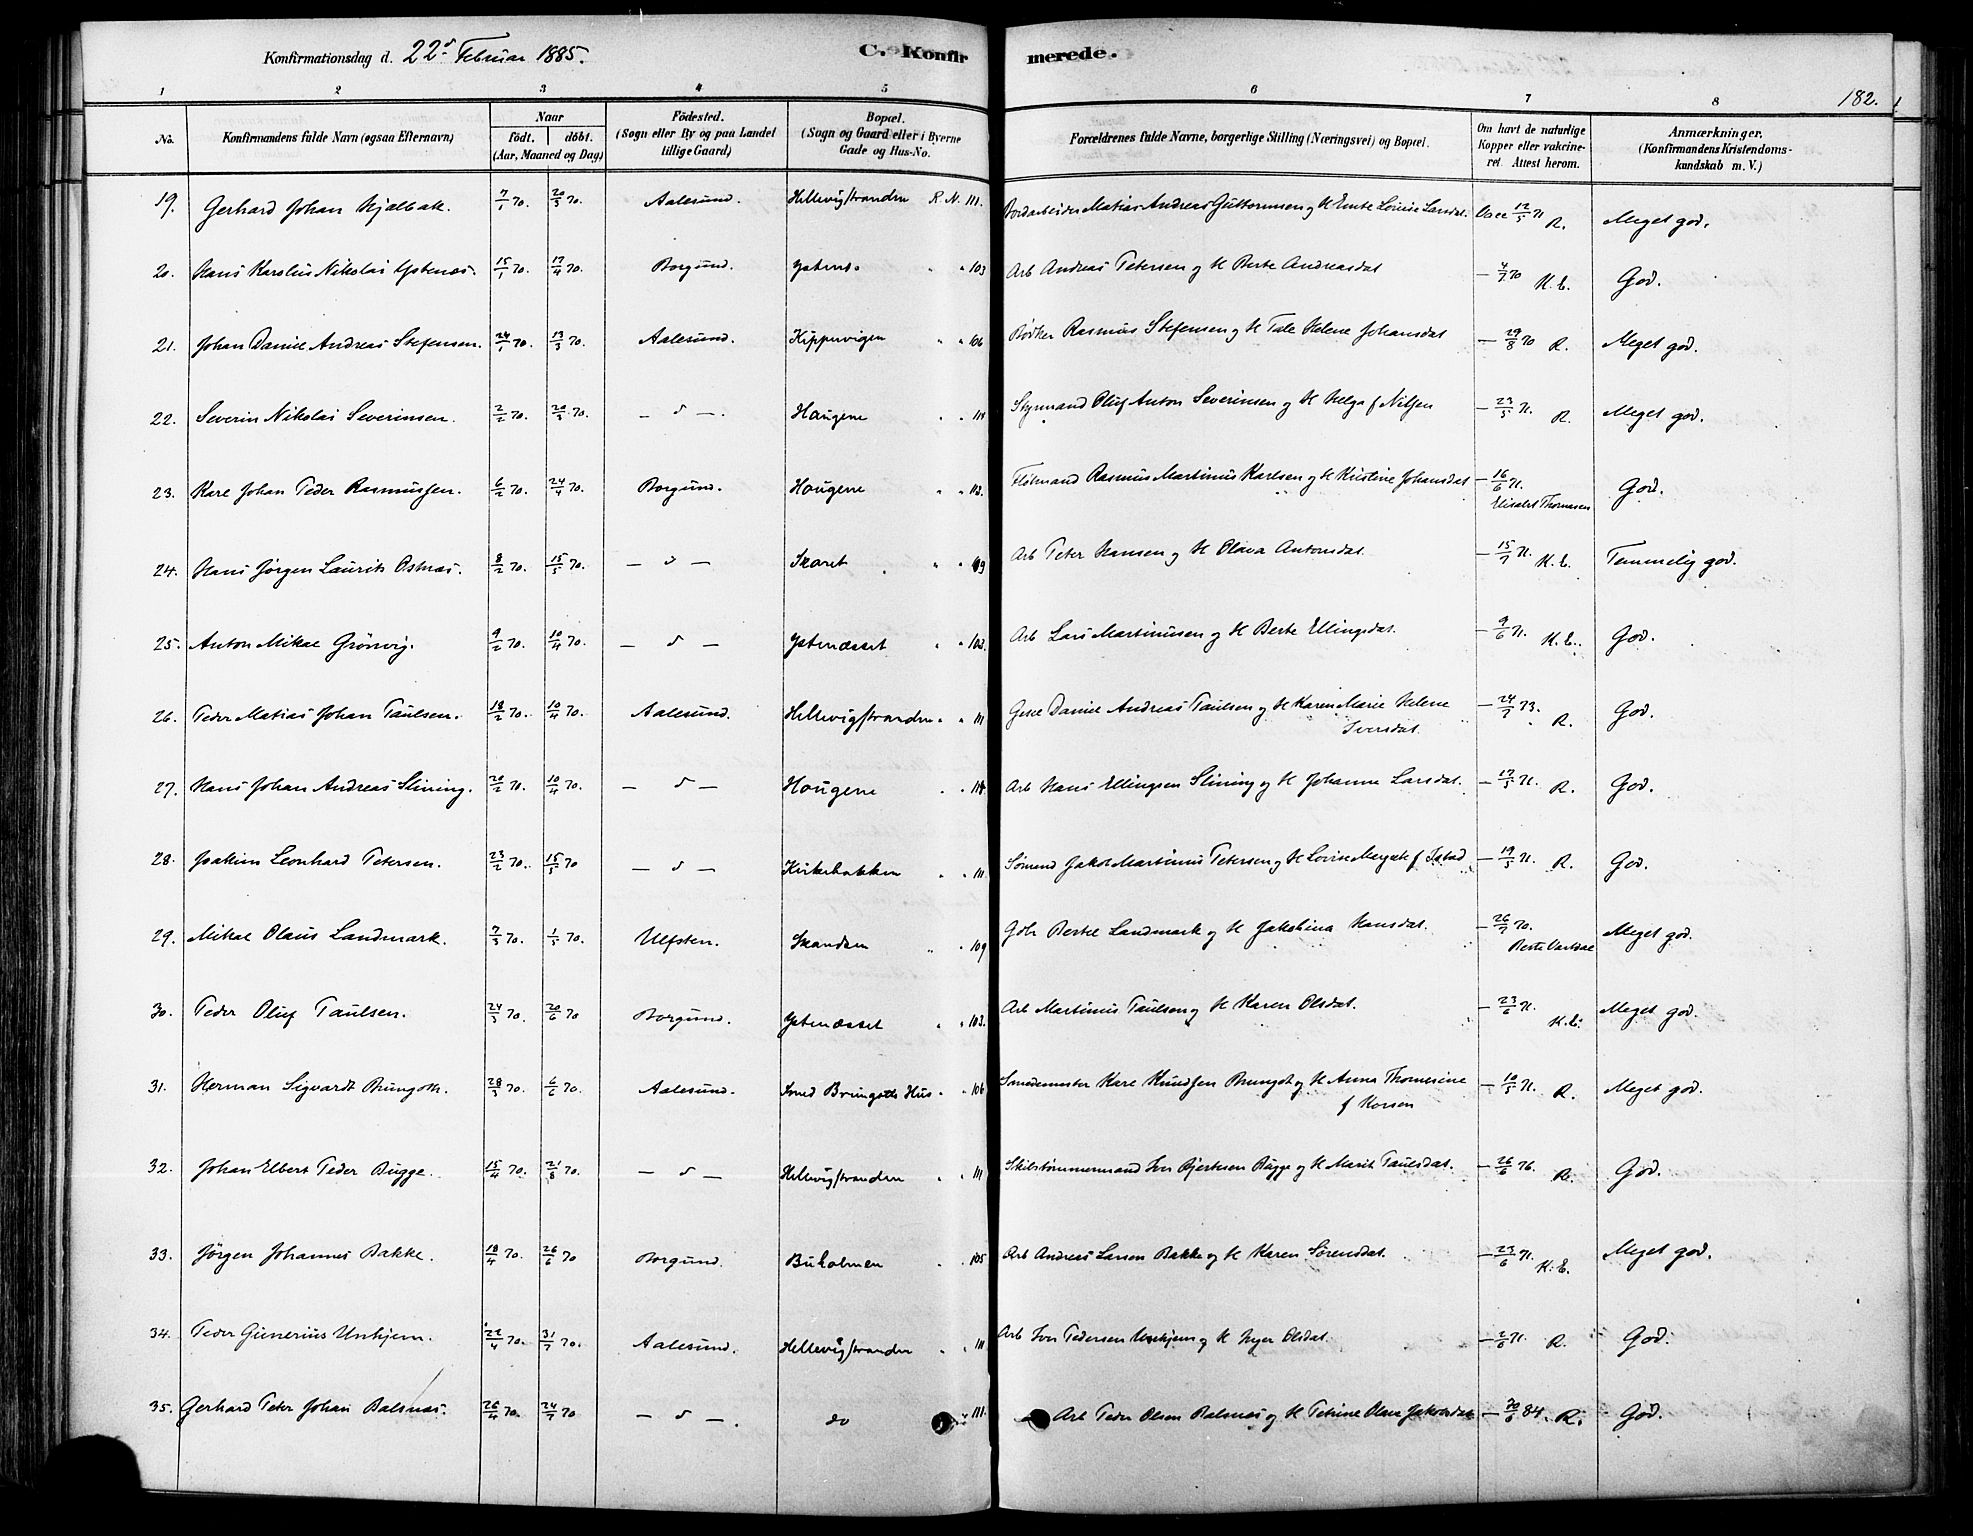 Konfirmationsdag d. 22d Februar 1885. C. Konfirmerede. 182.
1 2 3 4 5 6 7 8
No. Konfirmandens fulde Navn (ogsaa Efternavn) Naar Födt. döbt. (Aar, Maaned og Dag) Födested. (Sogn eller By og paa Landet tillige Gaard) Bopæl. (Sogn og Gaard eller i Byerne Gade og Hus-No. Forældrenes fulde Navne, borgerlige Stilling (Næringsvei) og Bopæl. Om havt de naturlige Kopper eller vakcineret. Attest herom. Anmærkninger. (Konfirmandens Kristendomskundskab m. V.)
19. Gerhard Johan Hjelbak. 7/1 70. 20/3 70. Aalesund. Hellevigstranden R. N. 111. Matias Andreas Guttormsen og H Louise Larsdat. Vacc 12/5 71 R. Meget god.
20. Hans Karolius Nikolai Ystenæs. 15/1 70. 17/4 70. Borgund. Ystens. " " 103 Arb Andreas Petersen og H Berte Andreasdat — 4/7 70 K. E. God.
21. Johan Daniel Andreas Stefensen. 24/1 70. 13/3 70. Aalesund. Kippervigen " " 106 Bødker Rasmus Stefensen og H Tale Helene Johansdat — 29/8 70 R. Meget god.
22. Severin Nikolai Severinsen. 2/2 70. 20/3 70. — d —. Haugene " " 111 Styrmand Oluf Anton Severinsen og H Helga f Nilsen — 23/5 71. R. Meget god.
23. Karl Johan Peder Rasmussen. 6/2 70. 24/4 70. Borgund. Haugene " " 112. Rasmus Martinus Karlsen og H Kristine Johansdat — 16/6 71. Elisabet Thomasen God.
24. Hans Jörgen Laurits Osnæs. 8/2 70. 15/5 70. — d — Skaret " " 109 Arb Peter Hansen og H Olava Antonsdat. — 15/7 71. K. E. Temmelig god.
25. Anton Mikal Grönvig. 9/2 70. 10/4 70. — d — Ystenæsset " " 102. Arb Lars Martinusen og H Berte Ellingsdat. — 9/6 71. K. E. God.
26. Peder Matias Johan Paulsen. 18/2 70. 10/4 70. Aalesund. Hellevigstranden " " 111 Gesel Daniel Andreas Paulsen og H Karen Marie Helene Iversdat. — 24/7 73. R. God.
27. Hans Johan Andreas Slining. 20/2 70. 10/4 70. — d — Haugene " " 114 Arb Hans Ellingsen Slining og H Johanne Larsdat. — 17/5 71. R. God.
28. Joakim Leonhard Petersen. 23/2 70. 15/5 70 — d — Kirkebakken " " 111 Sömand Jakob Martinus Petersen og H Lovise Margrete f — 19/5 71. R. God.
29. Mikal Olaus Landmark. 7/3 70. 1/5 70. Ulfsten. Skandsen " 109 Gdbr Bertel Landmark og H Jakobina Hansdat. — 26/7 70. Meget god.
30. Peder Oluf Paulsen. 24/3 70. 20/6 70 Borgund. Ystenæsset " " 103. Arb Martinus Paulsen og H Karen Olsdat. — 23/6 71. K. E. Meget god.
31. Herman Sigvardt Brungoth. 28/3 70. 6/6 70. Aalesund. Smed Brungoths Hus " " 106 Smedemester Karl Knudsen Brungot og H Anna Thomasine f Korsen — 10/5 71. R. Meget god.
32. Johan Elbert Peder Bugge. 15/4 70. 21/8 70. — d — Hellevigstranden " " 111 Skibstømmermand Iver Bugge og H Marit Paulsdat. — 26/6 76. R. God.
33. Jörgen Johannes Bakke. 18/4 70. 26/6 70 Borgund. Buholmen " " 105 Arb Andreas Larsen Bakke og H Karen Sörensdat. — 23/6 71. K. E. Meget god.
34. Peder Gunerius Unhjem. 22/4 70. 31/7 70. Aalesund. Hellevigstranden " " 111 Arb Iver Pedersen Unhjem og H Inger Olsdat. — 2/6 71. R. God.
35. Gerhard Peter Johan Balsnæs. 26/4 70. 24/7 70 — d —. do " 111. Arb Peder Olsen Balsnæs og H Petrine Olava Jakobsdat — 30/6 84. R. God.